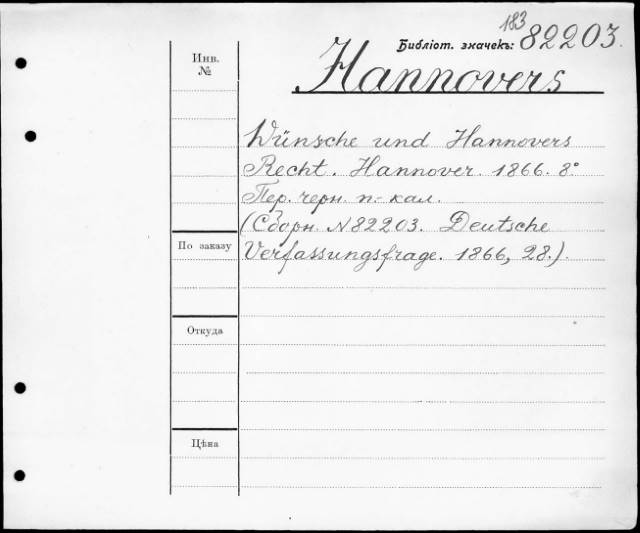 183
Библіот. значекъ: 82203.
Hannovers
Инв.
№
Wünsche und Hannovers
Recht. Hannover. 1866. 8°
Пер. черн. п.-кал.
(Сборн. N 82203. Deutsche
Verfassungsfrage. 1866, 28.).
По заказу
Откуда
Цѣна